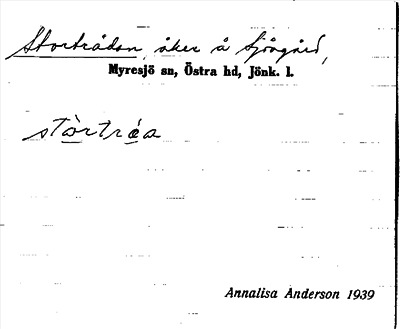 Stortrådan, åker å Sjögård,
Myresjö sn, Östra hd, Jönk. l.
stòrtráa
Annalisa Anderson 1939